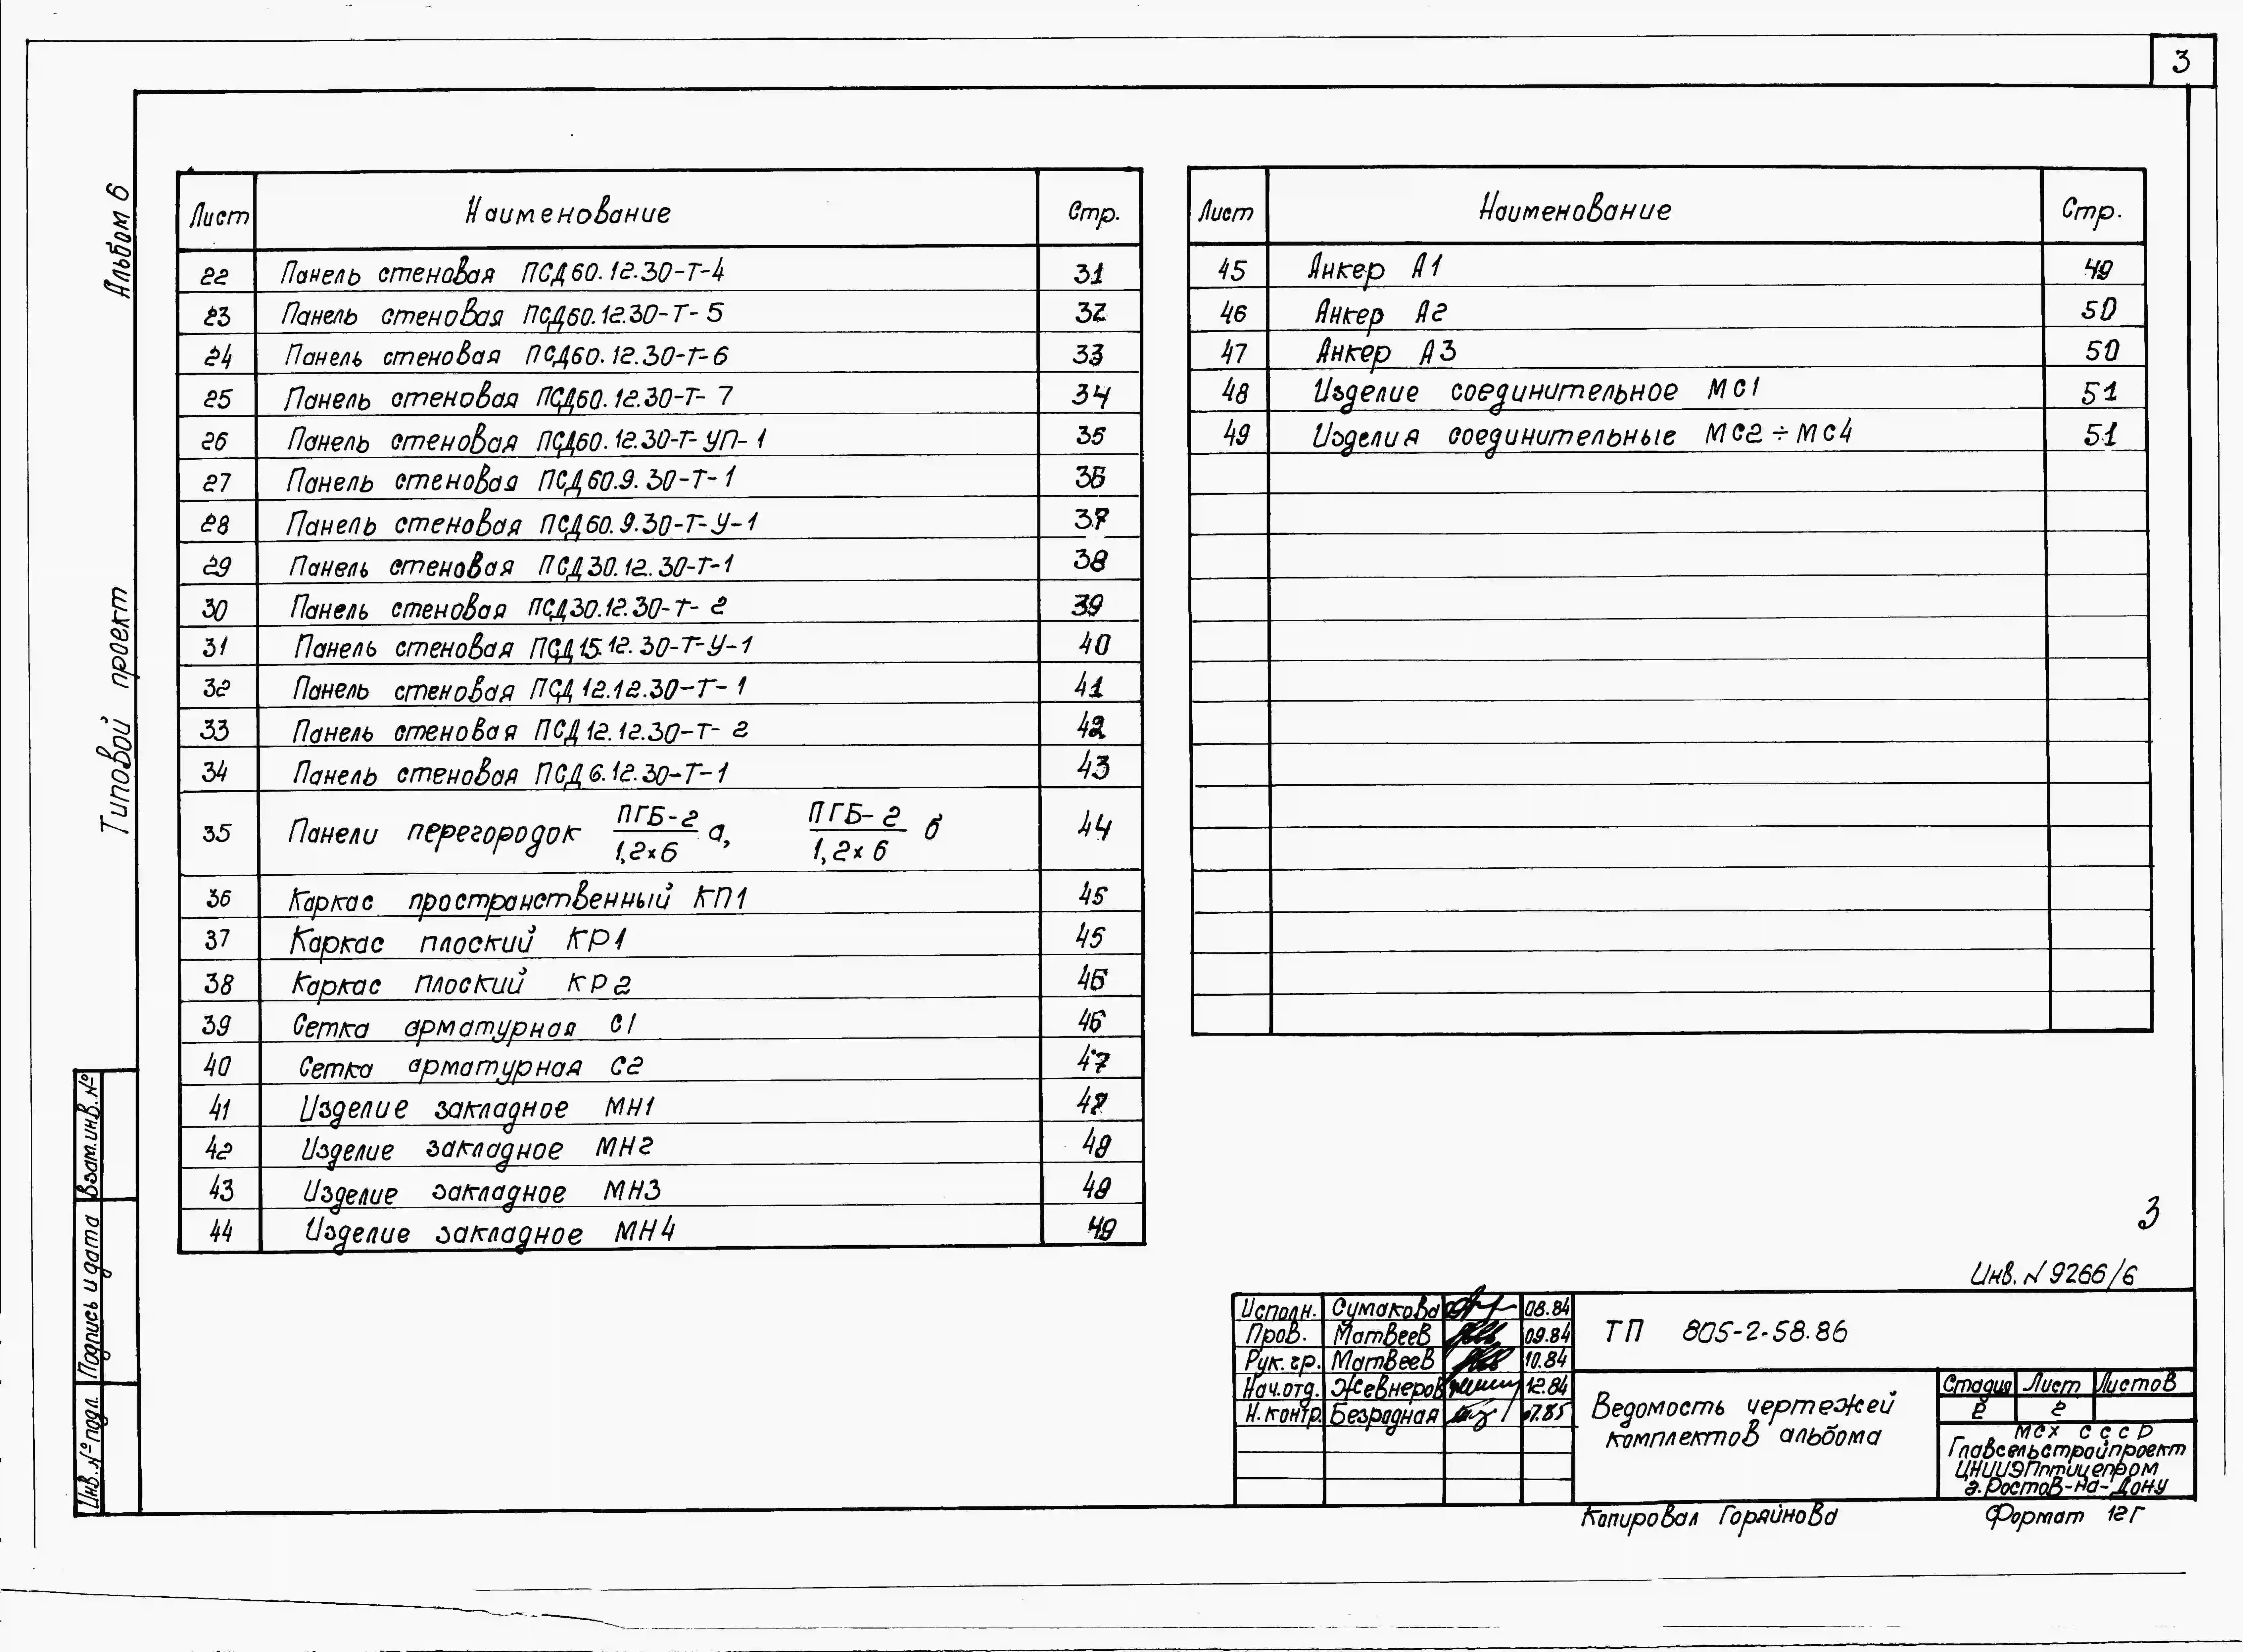 3
Альбом 6
Типовой проект
Лист Наименование Стр.
22 Панель стеновая ПСД60.12.30-Т-4 31
23 Панель стеновая ПСД60.12.30-Т-5 32
24 Панель стеновая ПСД60.12.30-Т-6 33
25 Панель стеновая ПСД60.12.30-Т-7 34
26 Панель стеновая ПСД60.12.30-Т-УП-1 35
27 Панель стеновая ПСД60.9.30-Т-1 36
28 Панель стеновая ПСД60.9.30-Т-У-1 37
29 Панель стеновая ПСД30.12.30-Т-1 38
30 Панель стеновая ПСД30.12.30-Т-2 39
31 Панель стеновая ПСД15.12.30-Т-У-1 40
32 Панель стеновая ПСД12.12.30-Т-1 41
33 Панель стеновая ПСД12.12.30-Т-2 42
34 Панель стеновая ПСД6.12.30-Т-1 43
35 Панели перегородок ПГБ-2/1,2×6 а, ПГБ-2/1,2×6 б 44
36 Каркас пространственный КП1 45
37 Каркас плоский КР1 45
38 Каркас плоский КР2 46
39 Сетка арматурная С1 46
40 Сетка арматурная С2 47
41 Изделие закладное МН1 47
42 Изделие закладное МН2 48
43 Изделие закладное МН3 48
44 Изделие закладное МН4 49
Лист Наименование Стр.
45 Анкер А1 49
46 Анкер А2 50
47 Анкер А3 50
48 Изделие соединительное МС1 51
49 Изделия соединительные МС2÷МС4 51
3
Инв. № 9266/6
Исполн. Сумакова 08.84
Пров. Матвеев 09.84
Рук. гр. Матвеев 10.84
Нач.отд. Жевнеров 12.84
Н.контр. Безродная 07.85
ТП 805-2-58.86
Ведомость чертежей
комплектов альбома
Стадия Лист Листов
Р 2
МСХ СССР
Главсельстройпроект
ЦНИИЭПптицепром
г. Ростов-на-Дону
Копировал Горяйнова
Формат 12Г
Взам.инв.№
Подпись и дата
Инв.№ подл.